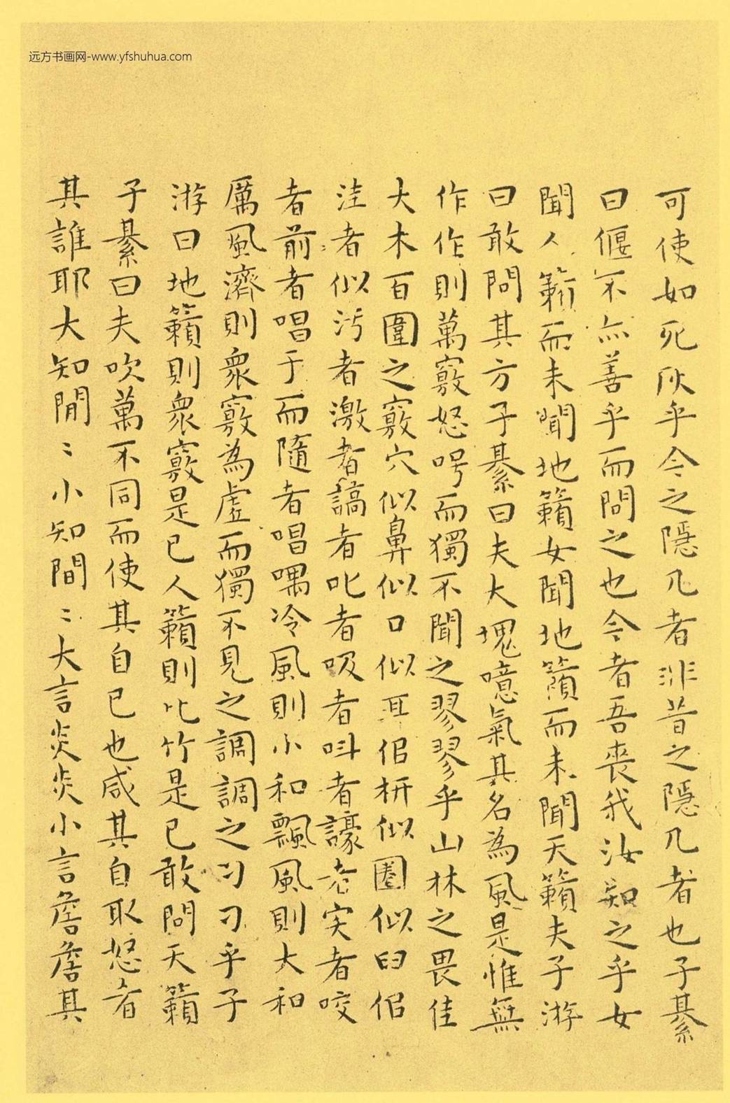 远方书画网-www.yfshuhua.com
可使如死灰乎今之隱几者非昔之隱几者也子綦
曰偃不亦善乎而問之也今者吾喪我汝知之乎女
聞人籟而未聞地籟女聞地籟而未聞天籟夫子游
曰敢問其方子綦曰夫大塊噫氣其名為風是惟無
作作則萬竅怒呺而獨不聞之翏翏乎山林之畏佳
大木百圍之竅穴似鼻似口似耳佀枅似圈似臼佀
洼者似污者激者謞者叱者吸者叫者譹者宎者咬
者前者唱于而隨者唱喁冷風則小和飄風則大和
厲風濟則衆竅為虛而獨不見之調調之刁刁乎子
游曰地籟則衆竅是已人籟則比竹是已敢問天籟
子綦曰夫吹萬不同而使其自已也咸其自取怒者
其誰耶大知閒〻小知間〻大言炎炎小言詹詹其